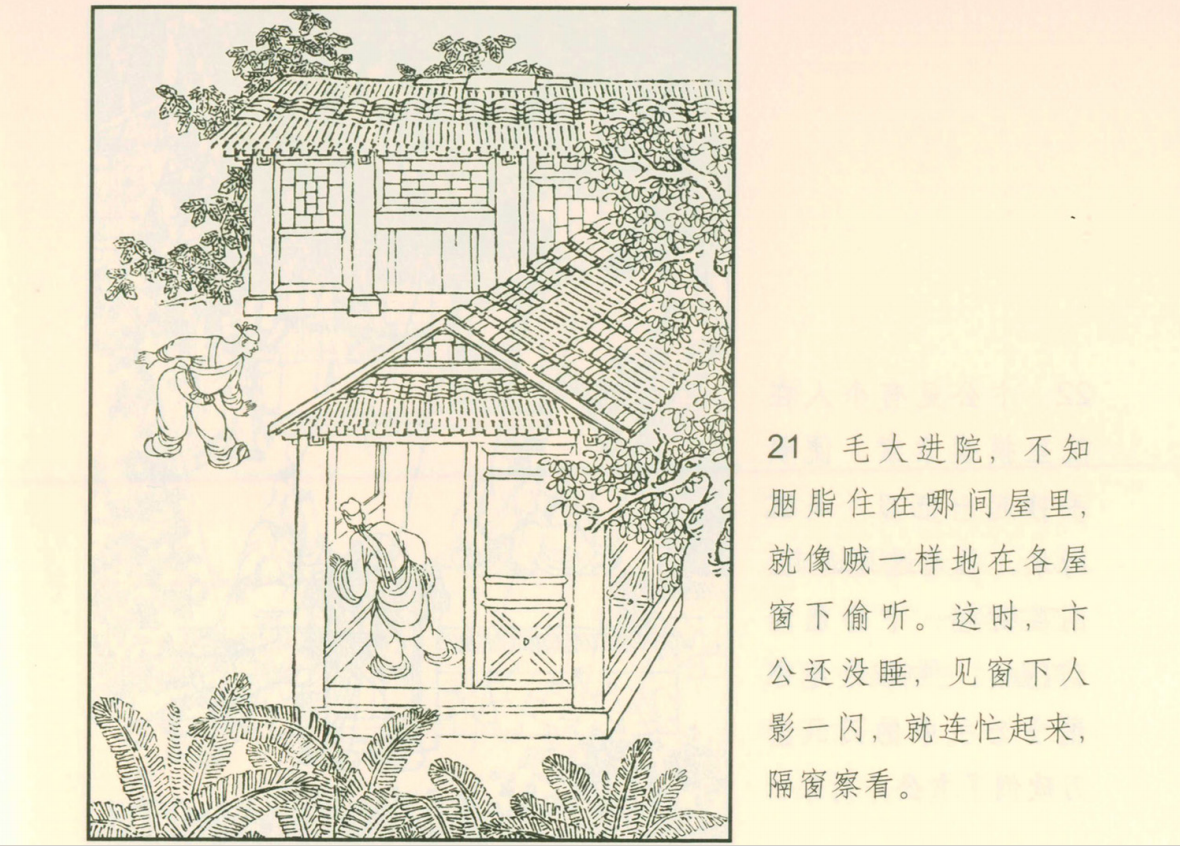 21 毛大进院，不知
胭脂住在哪间屋里，
就像贼一样地在各屋
窗下偷听。这时，卞
公还没睡，见窗下人
影一闪，就连忙起来，
隔窗察看。